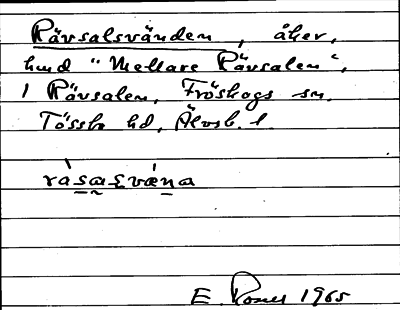 Rävsalsvänden, åker,
hmd "Mellare Rävsalen",
1 Rävsalen, Fröskogs sn.
Tössbo hd, Älvsb. l.
E. Rosell 1965